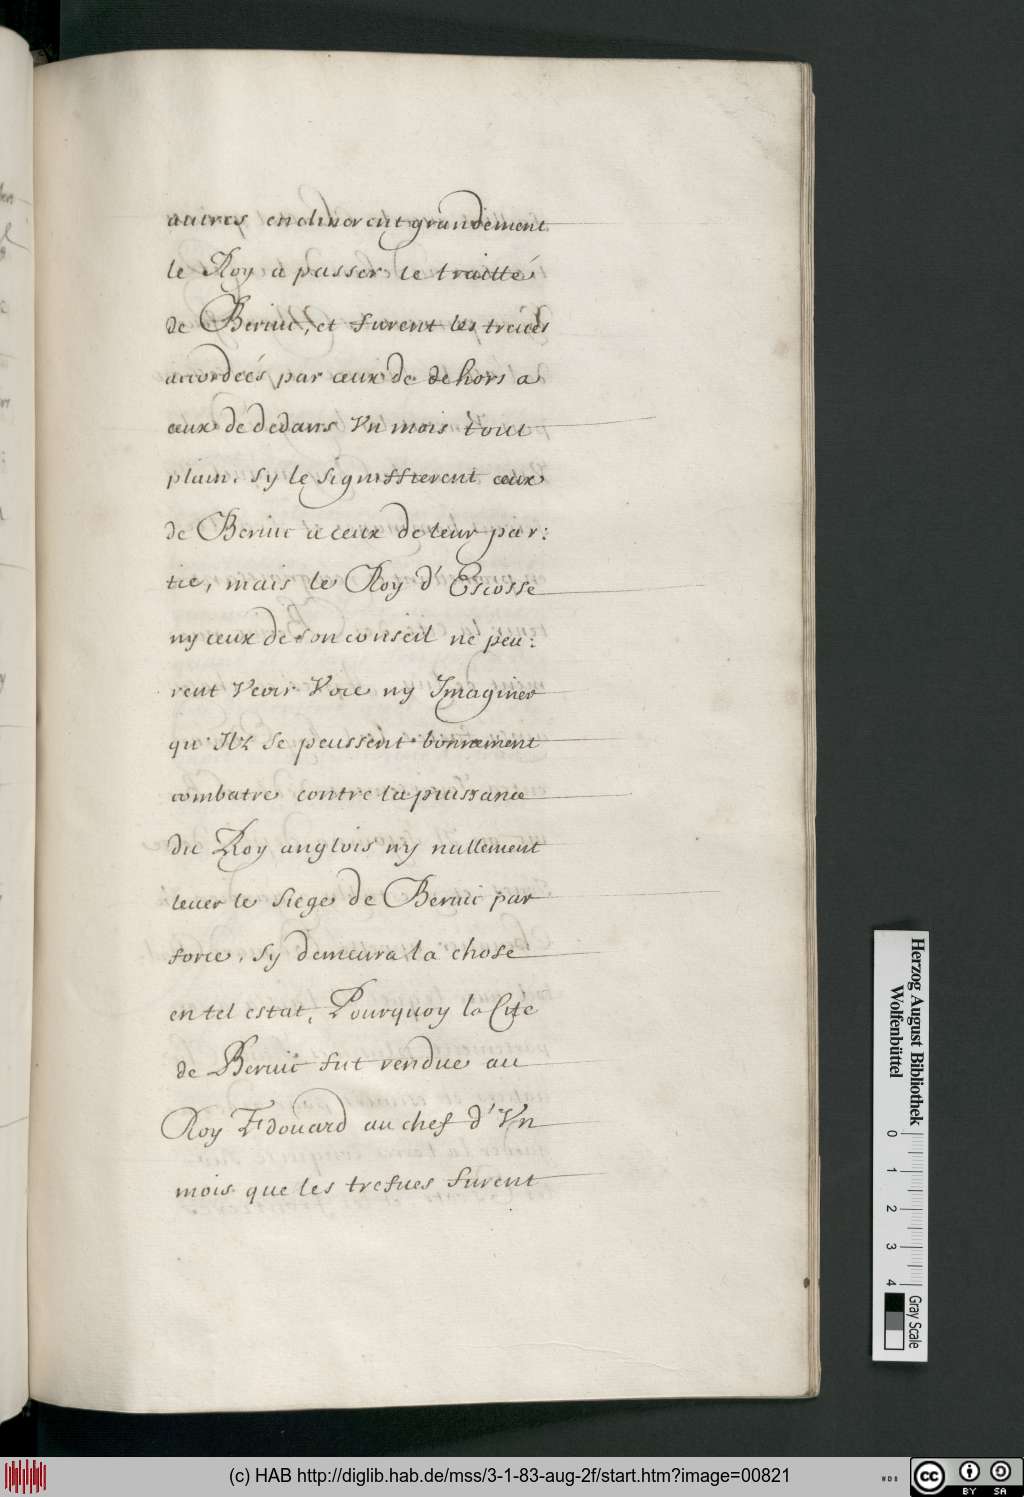 autres enclinerent grandement
le Roy a passer le traitté
de Beruic, et furent les treues
accordeés par ceux de dehors a
ceux de dedans Vn mois tout
plain. Sy le signiffierent ceux
de Beruic a ceux de leur par:
tie, mais le Roy d'Escosse
ny ceux de son conseil ne peu:
rent Veoir Voie ny Imaginer
qu'Ilz se peussent bonnement
combatre contre la puissance
du Roy anglois ny nullement
leuer le siege de Beruic par
force, Sy demeura la chose
en tel estat, Pourquoy la Cité
de Beruic fut rendue au
Roy Edouard au chef d'Vn
mois que les trefues furent
Herzog August Bibliothek
Wolfenbüttel
0 1 2 3 4
Gray Scale
(c) HAB http://diglib.hab.de/mss/3-1-83-aug-2f/start.htm?image=00821
WDB
cc BY SA